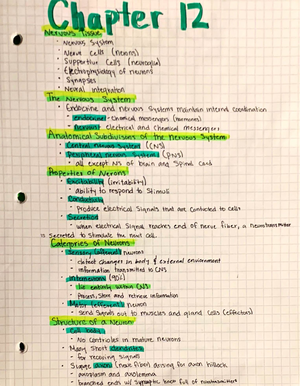 Chapter 12
Nervous Tissue
• Nervous System
• Nerve Cells (neurons)
• Supportive Cells (neuroglia)
• Electrophysiology of neurons
• Synapses
• Neural integration
The Nervous System
• Endocrine and nervous systems maintain internal coordination
• endocrine - chemical messengers (hormones)
• nervous electrical and chemical messengers
Anatomical Subdivisions of the Nervous System
• Central nervous System (CNS)
• Peripheral nervous System (PNS)
• all except NS of brain and Spinal Cord
Properties of Neurons
• Excitability (irritability)
• ability to respond to Stimuli
• Conductivity
• produce electrical Signals that are conducted to cells
• Secretion
• when electrical signal reaches end of nerve fiber, a neurotransmitter
is secreted to stimulate the next cell.
Categories of Neurons
• Sensory (afferent) neurons
• detect changes in body & external environment
• information transmitted to CNS
• Interneurons (90%)
• lie entirely within CNS
• Process, store and retrieve information
• Motor (efferent) neurons
• send signals out to muscles and gland cells (effectors)
Structure of a Neuron
• Cell body
• No centrioles in mature neurons
• Many Short dendrites
• for receiving signals
• Single axon (nerve fiber) arising from axon hillock
• axoplasm and axolemma
• branched ends w/ synaptic knob full of